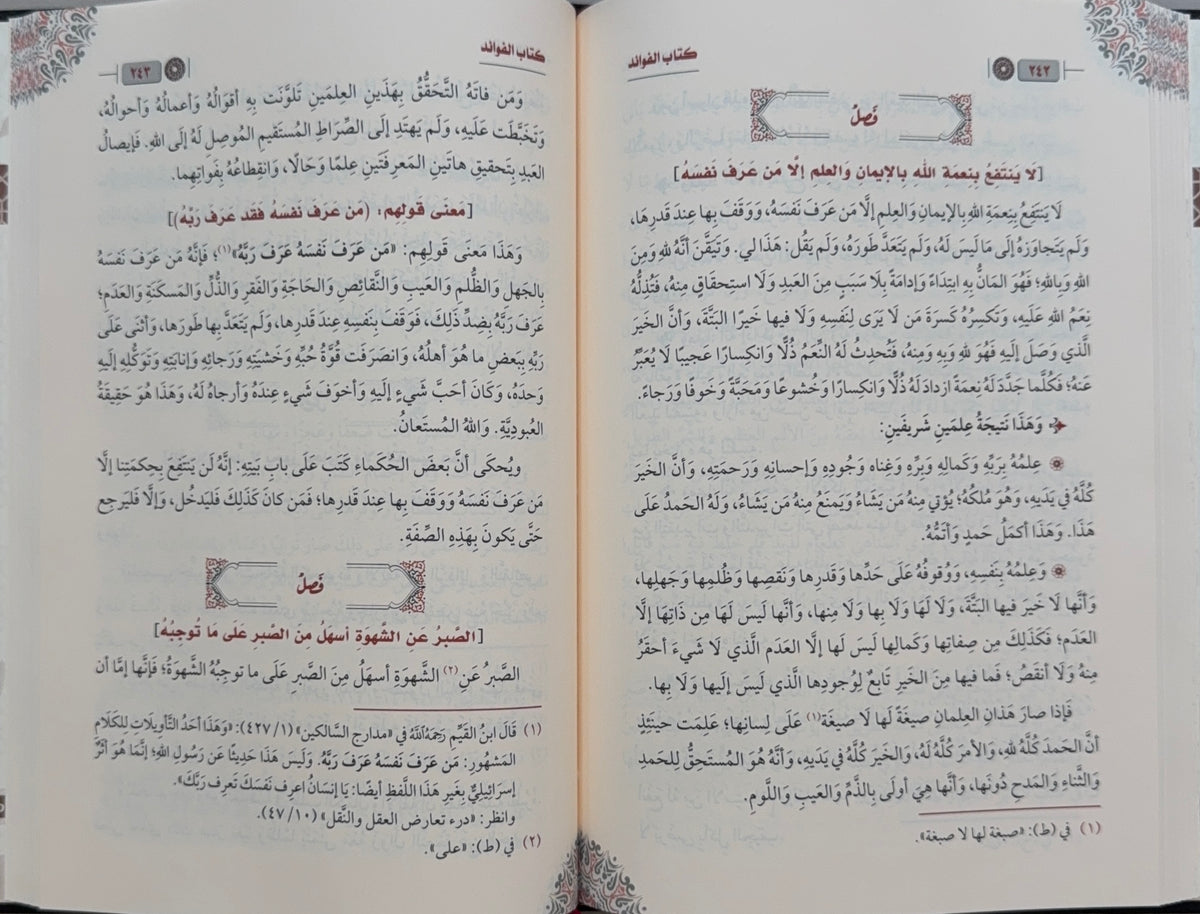 كتاب الفوائد
٢٤٢
فَصْلٌ
[لَا يَنْتَفِعُ بِنعمَةِ اللهِ بِالإيمانِ وَالعلمِ إلَّا مَن عَرَفَ نَفسَهُ]
لَا يَنْتَفِعُ بِنِعمَةِ اللهِ بِالإيمانِ وَالعِلمِ إلَّا مَن عَرَفَ نَفسَهُ، وَوَقَفَ بِها عِندَ قَدرِها،
وَلَم يَتَجاوَزهُ إلَى مَا لَيسَ لَهُ، وَلَم يَتَعَدَّ طَورَهُ، وَلَم يَقُل: هَذا لي. وَتَيَقَّنَ أنَّهُ للهِ وَمِنَ
اللهِ وَبِاللهِ؛ فَهُوَ المَانُّ بِهِ ابتِداءً وَإدامَةً بِلَا سَبَبٍ مِنَ العَبدِ وَلَا استِحقاقٍ مِنهُ، فَتُذِلُّهُ
نِعَمُ اللهِ عَلَيهِ، وَتَكسِرُهُ كَسرَةَ مَن لَا يَرَى لنَفسِهِ وَلَا فيها خَيرًا البَتَّةَ، وَأنَّ الخَيرَ
الَّذي وَصَلَ إلَيهِ فَهُوَ للهِ وَبِهِ وَمِنهُ، فَتُحدِثُ لَهُ النِّعَمُ ذُلًّا وَانكِسارًا عَجيبًا لَا يُعَبِّرُ
عَنهُ؛ فَكُلَّما جَدَّدَ لَهُ نِعمَةً ازدادَ لَهُ ذُلًّا وَانكِسارًا وَخُشوعًا وَمَحَبَّةً وَخَوفًا وَرَجاءً.
وَهَذا نَتيجَةُ عِلمَينِ شَريفَينِ:
عِلمُهُ بِرَبِّهِ وَكَمالِهِ وَبِرِّهِ وَغِناه وَجُودِهِ وَإحسانِهِ وَرَحمَتِهِ، وَأنَّ الخَيرَ
كُلَّهُ في يَدَيهِ، وَهُوَ مُلكُهُ؛ يُؤتي مِنهُ مَن يَشَاءُ وَيَمنَعُ مِنهُ مَن يَشَاءُ، وَلَهُ الحَمدُ عَلَى
هَذا. وَهَذا أكمَلُ حَمدٍ وَأتَمُّهُ.
وَعِلمُهُ بِنَفسِهِ، وَوُقوفُهُ عَلَى حَدِّها وَقَدرِها وَنَقصِها وَظُلمِها وَجَهلِها،
وَأنَّها لَا خَيرَ فيها البَتَّةَ، وَلَا لَها وَلَا بِها وَلَا مِنها، وَأنَّها لَيسَ لَها مِن ذَاتِها إلَّا
العَدَم؛ فَكَذَلِكَ مِن صِفاتِها وَكَمالِها لَيسَ لَها إلَّا العَدَم الَّذي لَا شَيءَ أحقَرُ
مِنهُ وَلَا أنقَصُ؛ فَما فيها مِنَ الخَيرِ تَابِعٌ لِوُجودِها الَّذي لَيسَ إلَيها وَلَا بِها.
فَإذا صارَ هَذانِ العِلمانِ صِبغَةً لَها لَا صيغَة(١) عَلَى لِسانِها؛ عَلِمَت حينَئِذٍ
أنَّ الحَمدَ كُلَّهُ للهِ، وَالأمرَ كُلَّهُ لَهُ، وَالخَيرَ كُلَّهُ في يَدَيهِ، وَأنَّهُ هُوَ المُستَحِقُّ لِلحَمدِ
وَالثَّناءِ وَالمَدحِ دُونَها، وَأنَّها هِيَ أولَى بِالذَّمِّ وَالعَيبِ وَاللَّومِ.
(١) في (ط): «صبغة لها لا صبغة».
كتاب الفوائد
٢٤٣
وَمَن فاتَهُ التَّحَقُّقُ بِهَذَينِ العِلمَينِ تَلَوَّنَت بِهِ أقوالُهُ وَأعمالُهُ وَأحوالُهُ،
وَتَخَبَّطَت عَلَيهِ، وَلَم يَهتَدِ إلَى الصِّرَاطِ المُستَقيمِ المُوصِلِ لَهُ إلَى اللهِ. فَإيصالُ
العَبدِ بِتَحقيقِ هاتَينِ المَعرِفَتَينِ عِلمًا وَحَالًا، وَانقِطاعُهُ بِفَواتِهِما.
[مَعنَى قولِهِم: (مَن عَرَفَ نَفسَهُ فَقد عَرَفَ رَبَّهُ)]
وَهَذا مَعنَى قَولِهِم: «مَن عَرَفَ نَفسَهُ عَرَفَ رَبَّهُ»(١)؛ فَإنَّهُ مَن عَرَفَ نَفسَهُ
بِالجَهلِ وَالظُّلمِ وَالعَيبِ وَالنَّقائِصِ وَالحَاجَةِ وَالفَقرِ وَالذُّلِّ وَالمَسكَنَةِ وَالعَدَمِ؛
عَرَفَ رَبَّهُ بِضِدِّ ذَلِكَ، فَوَقَفَ بِنَفسِهِ عِندَ قَدرِها، وَلَم يَتَعَدَّ بِها طَورَها، وَأثنَى عَلَى
رَبِّهِ بِبَعضِ ما هُوَ أهلُهُ، وَانصَرَفَت قُوَّةُ حُبِّهِ وَخَشيَتِهِ وَرَجائِهِ وَإنابَتِهِ وَتَوَكُّلِهِ إلَيهِ
وَحدَهُ، وَكانَ أحَبَّ شَيءٍ إلَيهِ وَأخوَفَ شَيءٍ عِندَهُ وَأرجاه لَهُ، وَهَذا هُوَ حَقيقَةُ
العُبودِيَّةِ. وَاللهُ المُستَعانُ.
ويُحكَى أنَّ بَعضَ الحُكَماءِ كَتَبَ عَلَى بابِ بَيتِهِ: إنَّهُ لَن يَنتَفِعَ بِحِكمَتِنا إلَّا
مَن عَرَفَ نَفسَهُ وَوَقَفَ بِها عِندَ قَدرِها؛ فمَن كانَ كَذَلِكَ فَليَدخُل، وَإلَّا فَليَرجِع
حَتَّى يَكونَ بِهَذِهِ الصِّفَةِ.
فَصْلٌ
[الصَّبرُ عَنِ الشَّهوَةِ أسهَلُ مِنَ الصَّبرِ عَلَى مَا تُوجِبُهُ]
الصَّبرُ عَنِ(٢) الشَّهوَةِ أسهَلُ مِنَ الصَّبرِ عَلَى ما توجِبُهُ الشَّهوَةُ؛ فَإنَّها إمَّا أن
(١) قَالَ ابنُ القَيِّمِ رَحِمَهُ اللهُ في «مدارج السَّالكين» (٤٢٧/١): «وَهَذا أحَدُ التَّأويلَاتِ لِلكَلَامِ
المَشهُورِ: مَن عَرَفَ نَفسَهُ عَرَفَ رَبَّهُ. وَلَيسَ هَذا حَديثًا عَن رَسُولِ اللهِ؛ إنَّما هُوَ أثَرٌ
إسرائيليٌّ بِغَيرِ هَذا اللَّفظِ أيضًا: يَا إنسَانُ اعرِف نَفسَكَ تَعرِف رَبَّكَ».
وانظر: «درء تعارض العقل والنَّقل» (٤٧/١٠).
(٢) في (ط): «على».